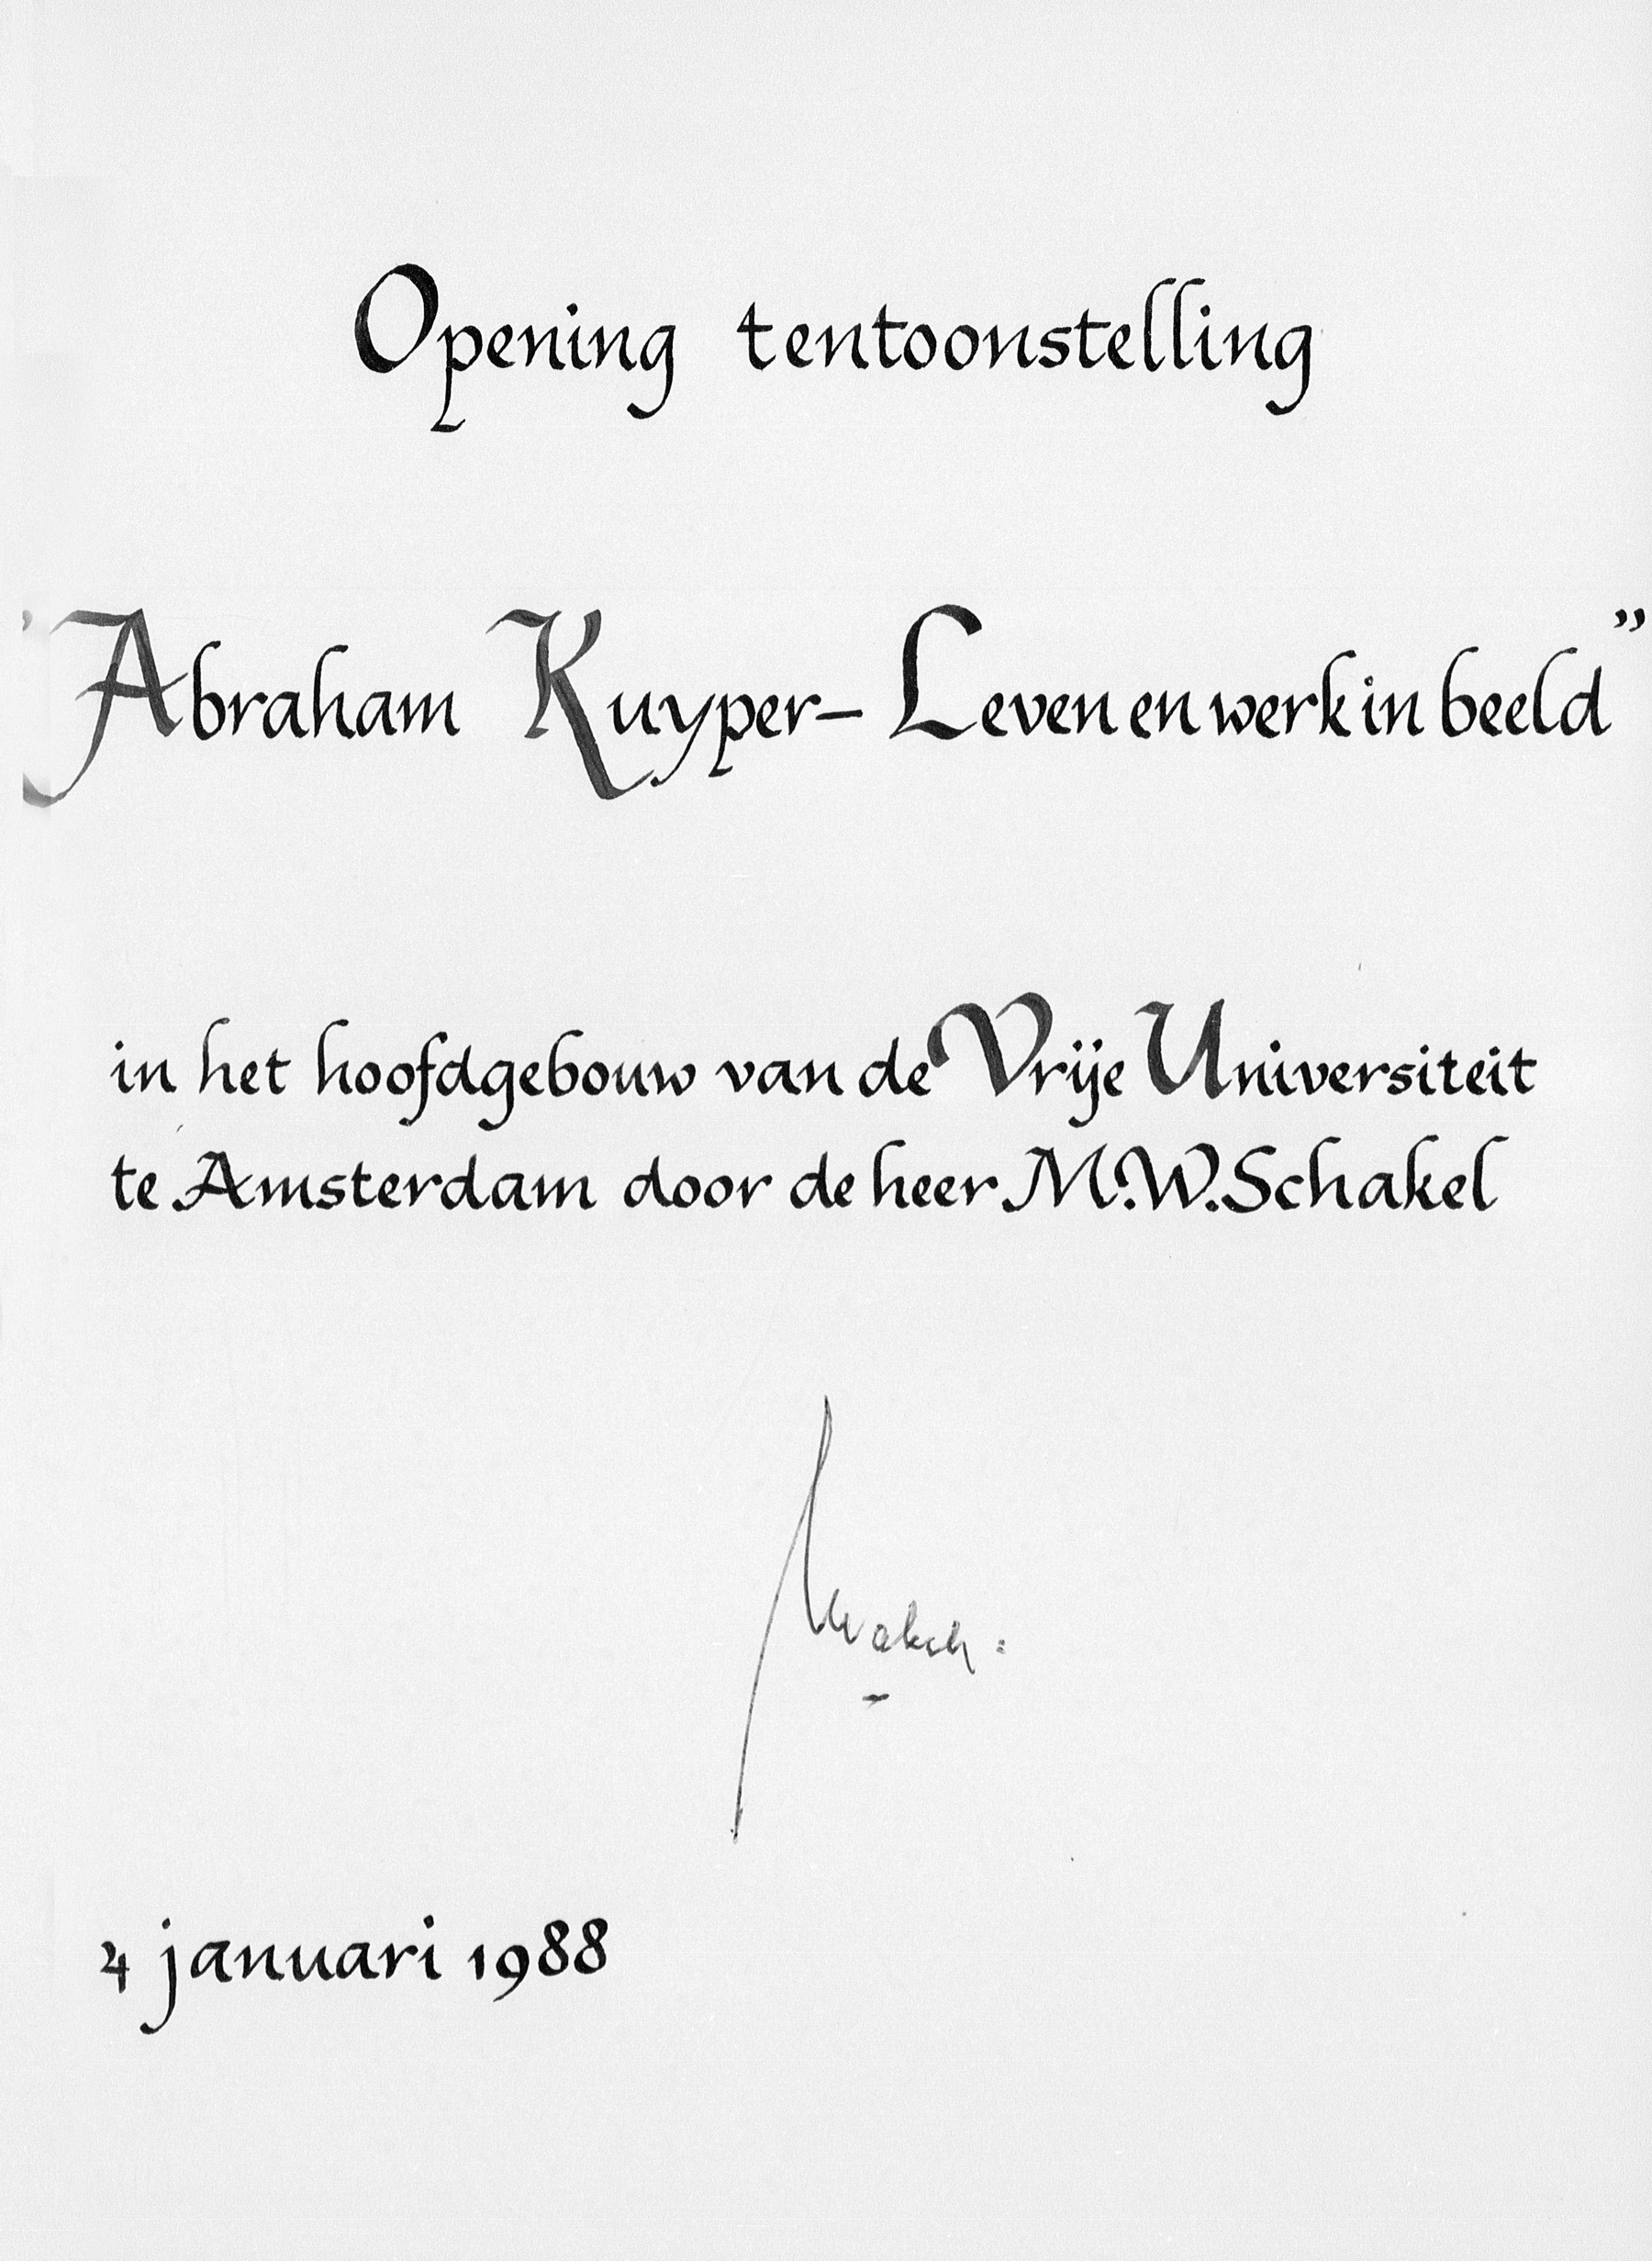 Opening tentoonstelling
"Abraham Kuyper - Leven en werk in beeld"
in het hoofdgebouw van de Vrije Universiteit
te Amsterdam door de heer M.W. Schakel
4 januari 1988